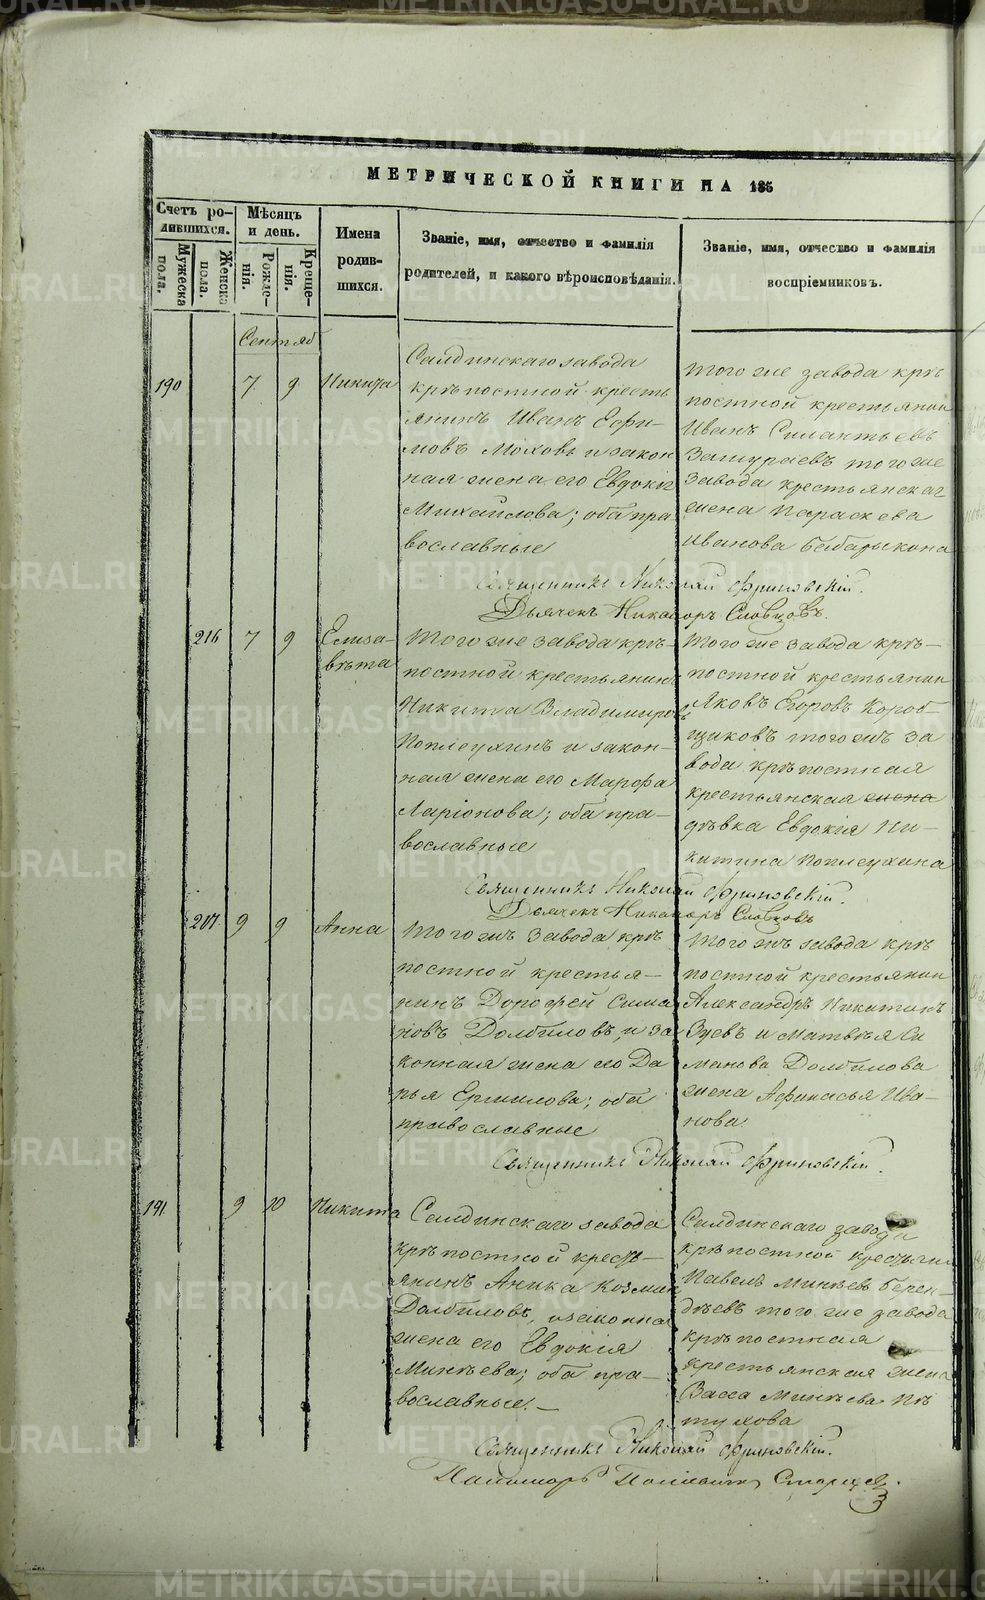 МЕТРИЧЕСКОЙ КНИГИ НА 185
Счетъ ро-
дившихся.
Мужеска
пола.
Женска
пола.
Мѣсяцъ
и день.
Рожде-
нія.
Креще-
нія.
Имена
родив-
шихся.
Званіе, имя, отчество и фамилія
родителей, и какого вѣроисповѣданія.
Званіе, имя, отчество и фамилія
воспріемниковъ.
Сентяб
190
7
9
Никита
Салдинскаго завода
крѣпостной кресть
янинъ Иванъ Ефи-
мовъ Моховъ и закон
ная жена его Евдокія
Михайлова; оба пра
вославные
того же завода крѣ
постной крестьянин
Иванъ Силантьевъ
того же
завода крестьянская
жена Параскева
Иванова Бабарыкина
Священникъ Николай Фриновскій.
Дьячекъ Никаноръ Словцовъ.
216
7
9
Елиза-
вѣта
Того же завода крѣ-
постной крестьянинъ
Никита Владимировъ
Поплеухинъ и закон-
ная жена его Марфа
Ларіонова; оба пра-
вославные
Того же завода крѣ-
постной крестьянин
Яковъ Егоровъ Короб-
щиковъ того жъ за
вода крѣпостная
крестьянская жена
дѣвка Евдокія Ни-
китина Поплеухина
Священникъ Николай Фриновскій.
Дьячекъ Никаноръ Словцовъ
217
9
9
Анна
Того жъ завода крѣ
постной крестья-
нинъ Дорофей Сима
новъ Долбиловъ, и за
конная жена его Да
рья Ермилова; оба
православные
Того жъ завода крѣ
постной крестьянин
Александръ Никитинъ
Зуевъ и Матвѣя Си
манова Долбилова
жена Афанасья Ива-
нова.
Священникъ Николай Фриновскій.
191
9
10
Никита
Салдинскаго завода
крѣпостной кресть-
янинъ Аника Козмин
Долбиловъ, и законная
жена его Евдокія
Минѣева; оба пра-
вославные.-
Салдинскаго завода
крѣпостной крестьянин
Павелъ Минѣевъ Берен-
дѣевъ того же завода
крѣпостная
крестьянская жена
Васса Минѣева Пѣ
тухова
Священникъ Николай Фриновскій.
Пономарь
METRIKI.GASO-URAL.RU